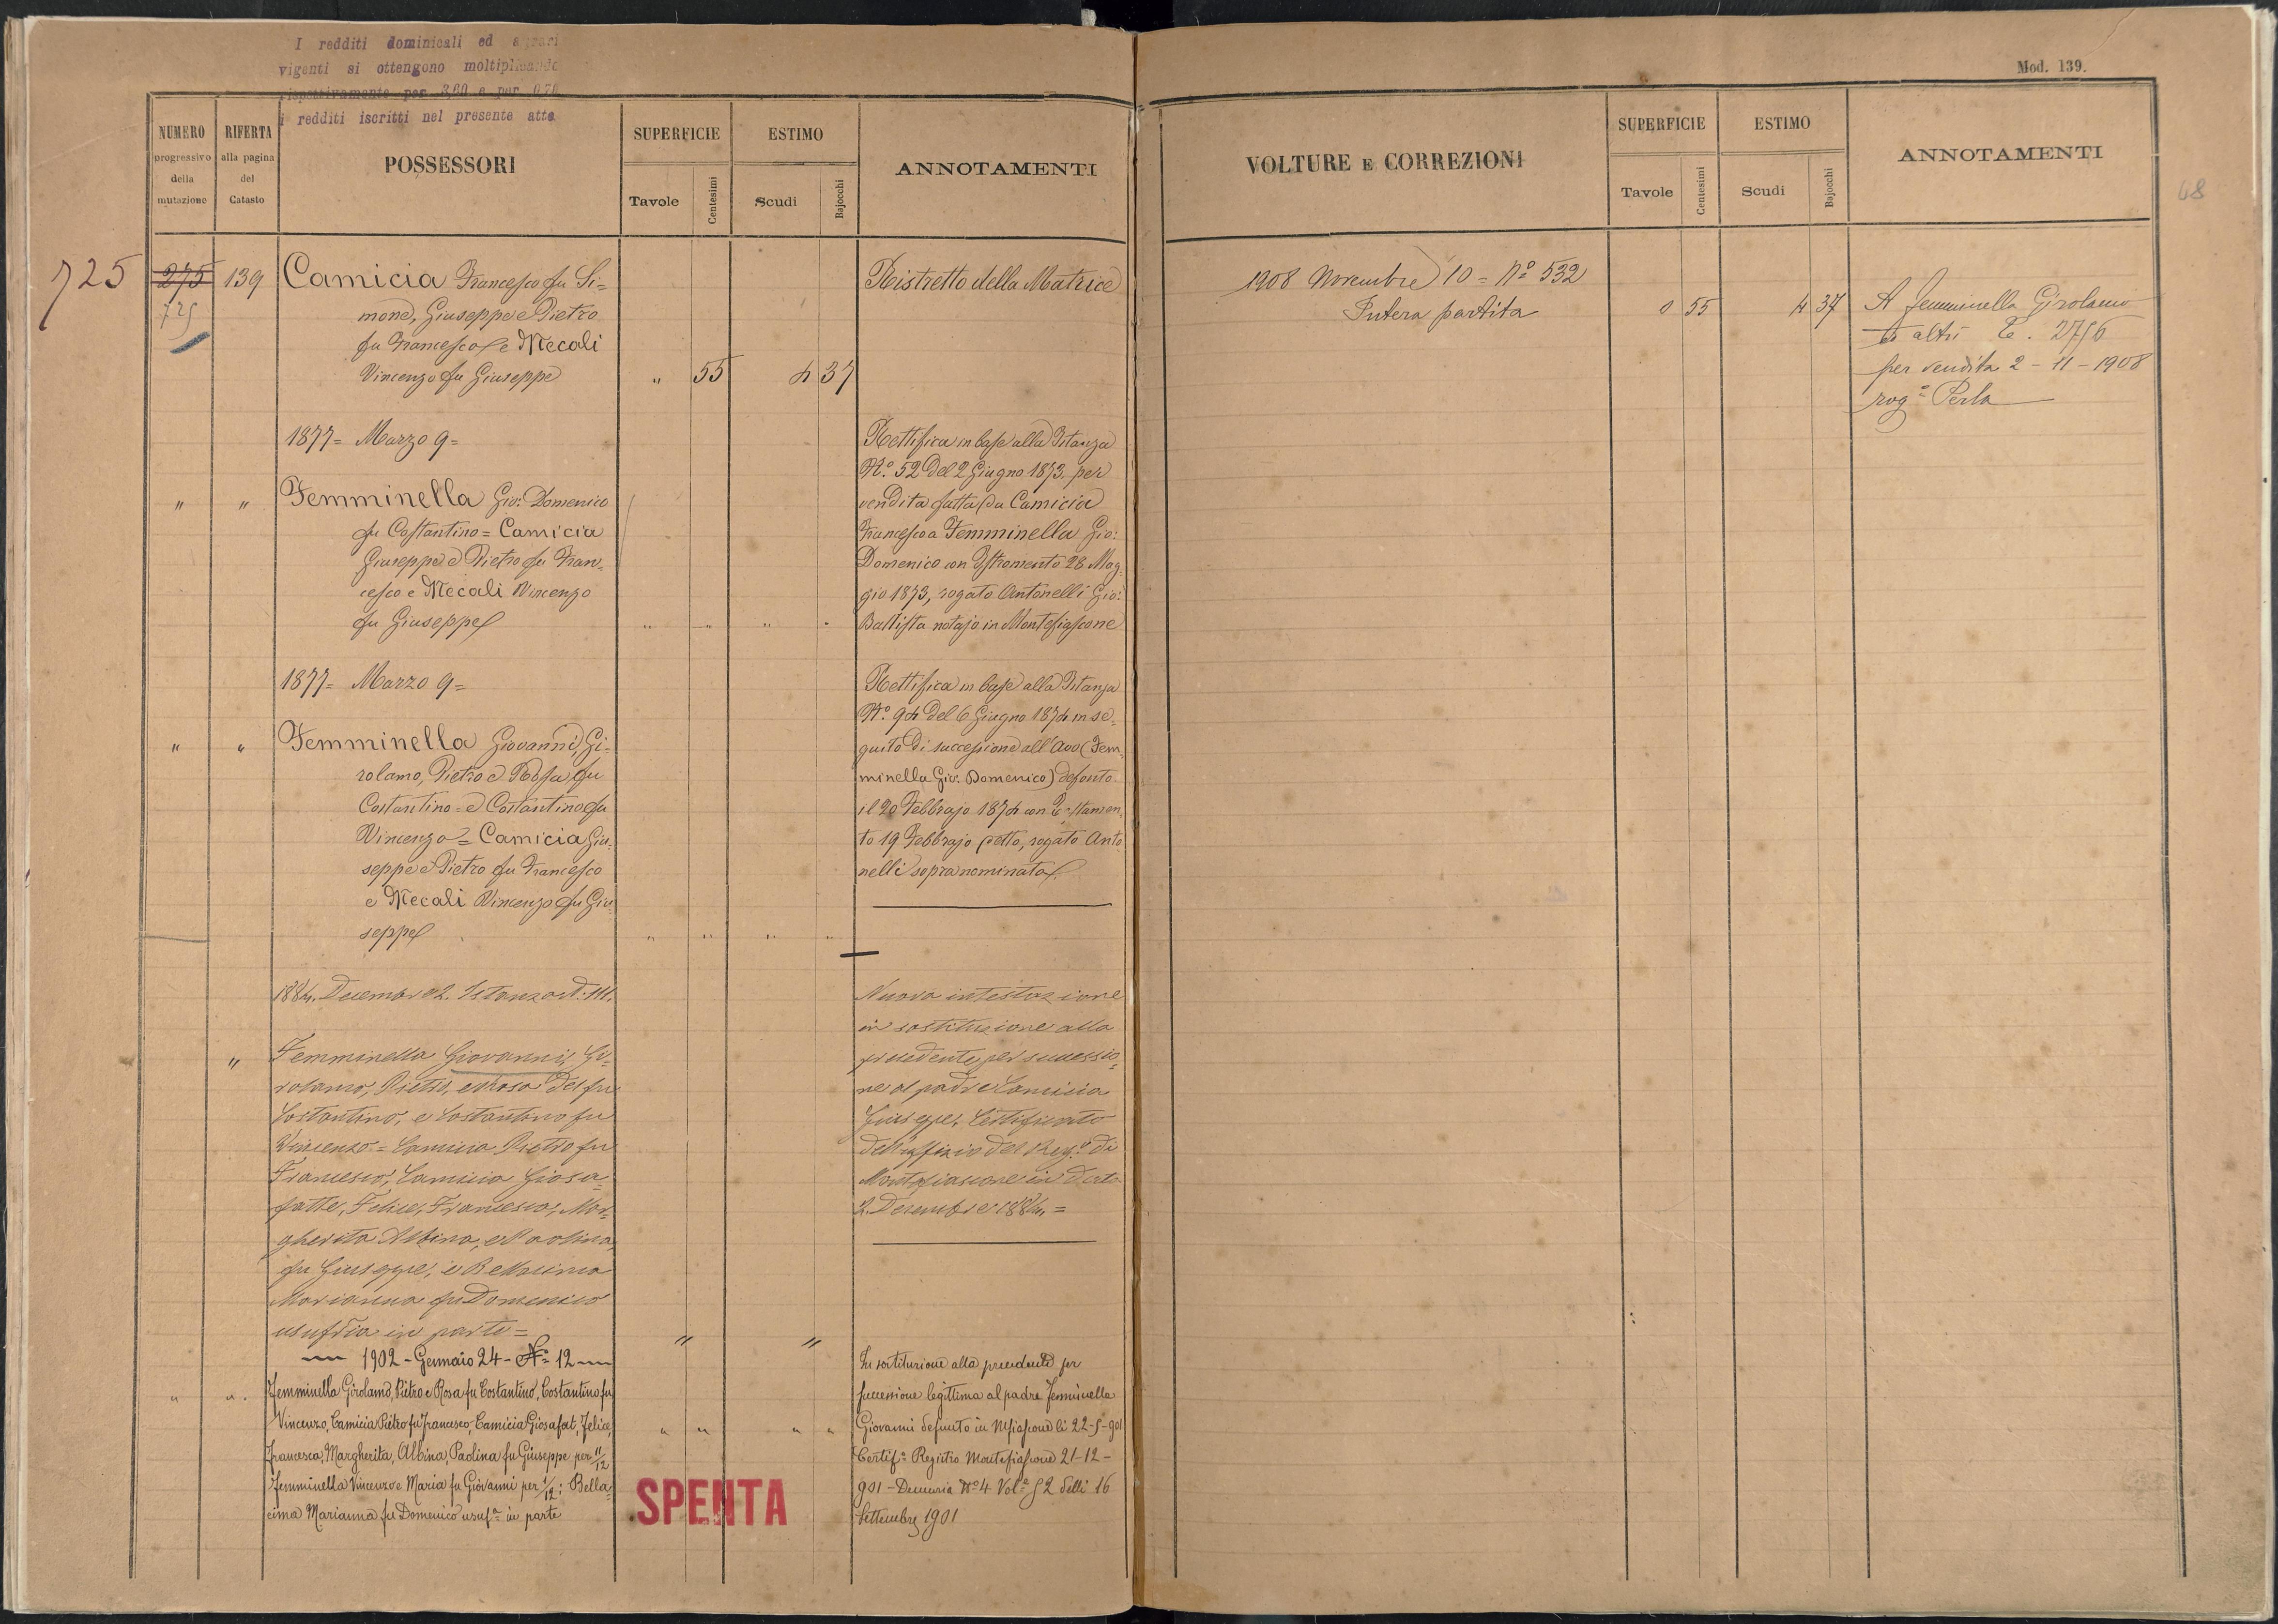 I redditi dominicali ed agrari
vigenti si ottengono moltiplicando
rispettivamente per 3,60 e per 0,70
i redditi iscritti nel presente atto
Mod. 139.
68
NUMERO
progressivo
della
mutazione
RIFERTA
alla pagina
del
Catasto
POSSESSORI
SUPERFICIE
Tavole
Centesimi
ESTIMO
Scudi
Bajocchi
ANNOTAMENTI
VOLTURE E CORREZIONI
SUPERFICIE
Tavole
Centesimi
ESTIMO
Scudi
Bajocchi
ANNOTAMENTI
725
275
725
139
Camicia Francesco fu Si=
mone, Giuseppe e Pietro
fu Francesco e Mecali
Vincenzo fu Giuseppe " 55 4 37
Ristretto della Matrice
1877= Marzo 9=
" " Femminella Gio: Domenico
fu Costantino = Camicia
Giuseppe e Pietro fu Fran=
cesco e Mecali Vincenzo
fu Giuseppe " " " "
Rettifica in base alla Istanza
N.º 52 del 2 Giugno 1873 per
vendita fatta da Camicia
Francesco a Femminella Gio:
Domenico con Istromento 28 Mag=
gio 1873, rogato Antonelli Gio:
Battista notajo in Montefiascone
1877= Marzo 9=
" " Femminella Giovanni, Gi=
rolamo, Pietro e Rosa fu
Costantino = e Costantino fu
Vincenzo = Camicia Giu=
seppe e Pietro fu Francesco
e Mecali Vincenzo fu Giu=
seppe " " " "
Rettifica in base alla Istanza
N.º 94 del 6 Giugno 1874 in se=
guito di successione all'Avo (Fem=
minella Gio: Domenico) defonto
il 20 Febbrajo 1874 con Testamen=
to 19 Febbrajo detto, rogato Anto
nelli sopranominato
1884. Decembre 2. Istanza N. 111.
" Femminella Giovanni, Gi=
rolamo, Pietro, e Rosa del fu
Costantino, e Costantino fu
Vincenzo = Camicia Pietro fu
Francesco, Camicia Giosa=
fatte, Felice, Francesco, Mar=
gherita Albina, e Paolina,
fu Giuseppe, e Bellacima
Marianna fu Domenico
usufr.ia in parte = " "
Nuova intestazione
in sostituzione alla
precedente per successio=
ne al padre Camicia
Giuseppe, Certificato
dell'uffizio del Reg.º di
Montefiascone in data
2. Decembre 1884. =
1902 - Gennaio 24 - Nº 12
" " Femminella Girolamo, Pietro e Rosa fu Costantino, Costantino fu
Vincenzo, Camicia Pietro fu Francesco, Camicia Giosafat, Felice, " " " "
Francesca, Margherita, Albina, Paolina fu Giuseppe per 11/12
Femminella Vincenzo e Maria fu Giovanni per 1/12; Bella=
cima Marianna fu Domenico usufª in parte
In sostituzione alla precedente per
successione legittima al padre Femminella
Giovanni defunto in Mfiascone li 22-5-901
Certifº Registro Montefiascone 21-12-
901 - Denuncia Nº 4 Vol. 52 delli 16
Settembre 1901
SPENTA
1908 Novembre 10 = Nº 532
Intera partita 0 55 4 37
A Femminella Girolamo
ed altri T. 2756
per vendita 2-11-1908
rogº Perla